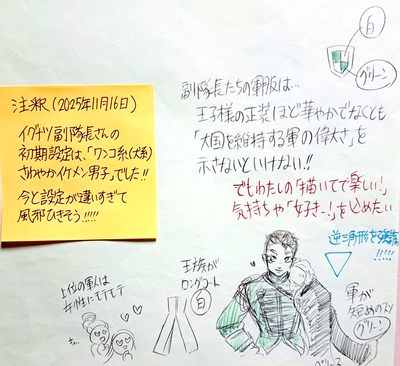 白
グリーン
注釈（2025年11月16日）
イグナツ副隊長さんの
初期設定は、「ワンコ系(犬系)
さわやかイケメン男子」でした!!
今と設定が違いすぎて
風邪ひきそう!!!!!
副隊長たちの軍服は…
王子様の正装ほど華やかでなくとも
「大国を維持する軍の偉大さ」を
示さないといけない!!
でもわたしの「描いてて楽しい!」
気持ちや「好きー!」を込めたい
逆三角形を強調
!!!!!
上位の軍人は
女性にモテモテ
王族が
ロングコート
白
軍が
短めの
グリーン